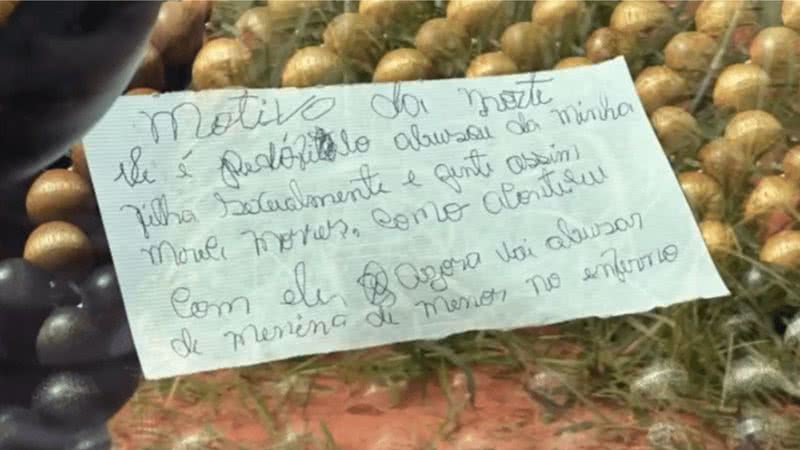 Motivo da morte
ele é pedófilo abusou da minha
filha sexualmente e gente assim
morre, como aconteceu
com ele, Agora vai abusar
de menina de menor no enferno